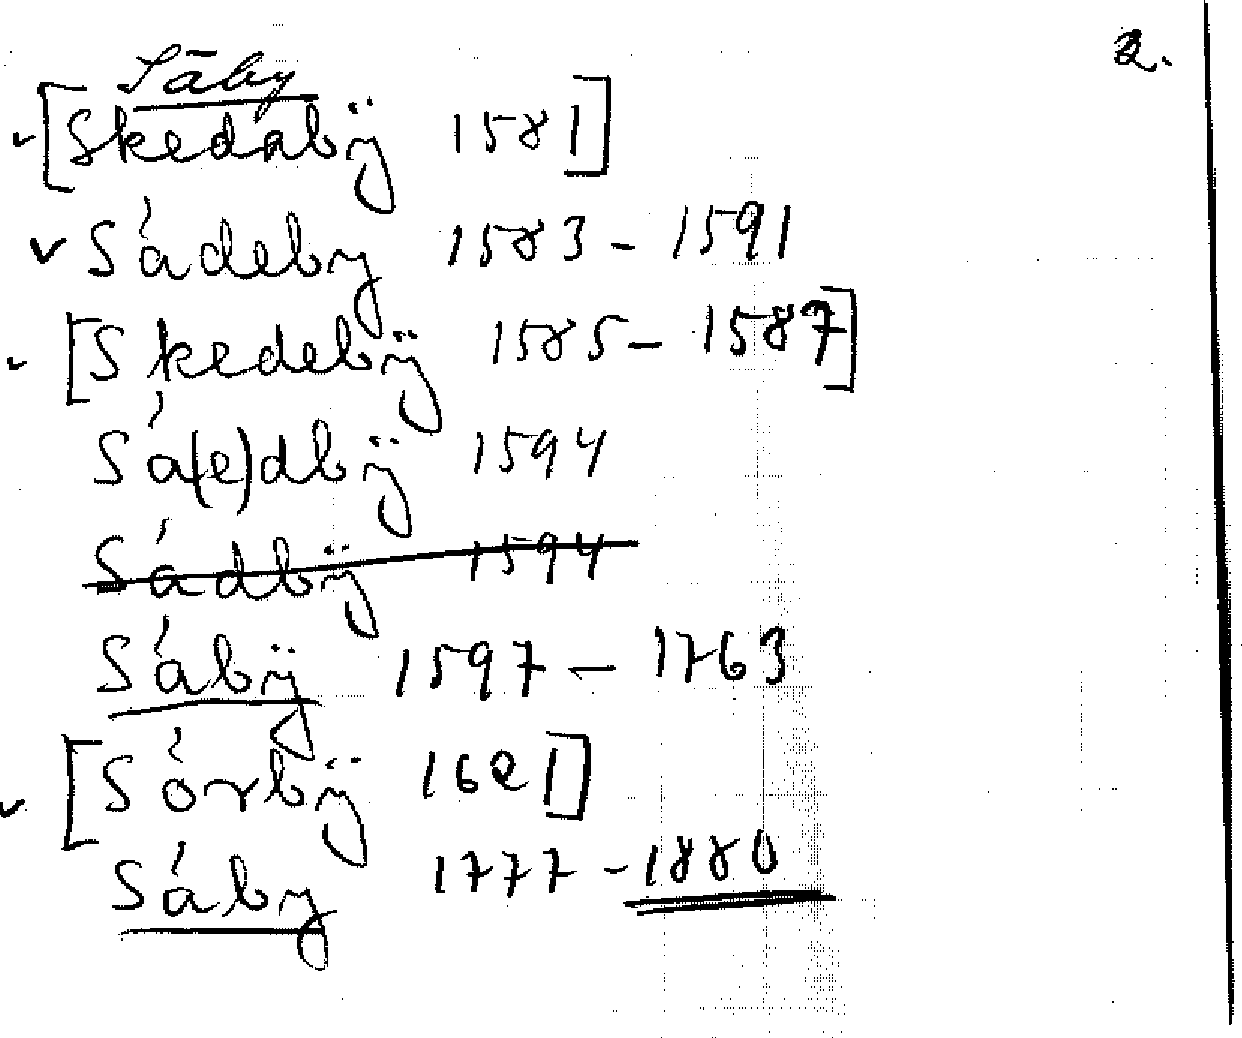 2.
Sāby
✓ [Skedabÿ 1581]
✓ Sádeby 1583 - 1591
✓ [Skedebÿ 1585 - 1587]
Sá(e)dbÿ 1594
Sádbÿ 1594
Sábÿ 1597 - 1763
✓ [Sórbÿ 1621]
Sáby 1777 - 1880